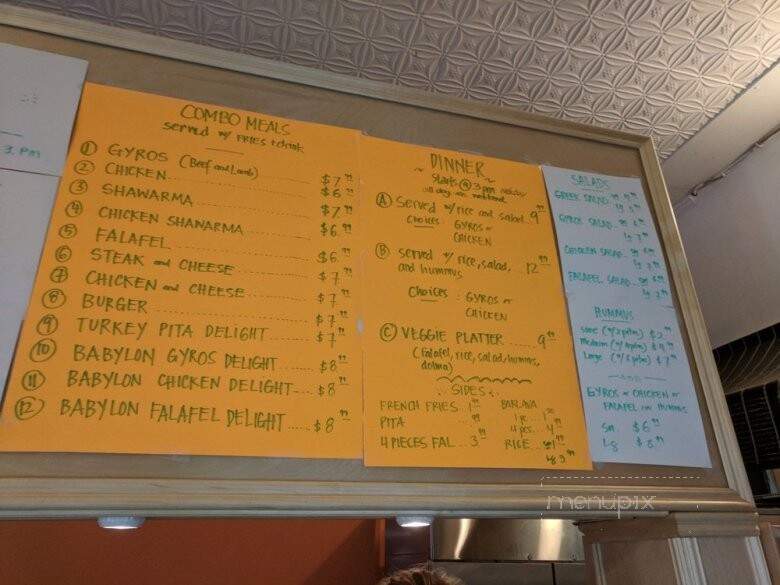 3 PM
COMBO MEALS
served w/ FRIES + drink
① GYROS (Beef and Lamb) $7.99
② CHICKEN $6.99
③ SHAWARMA $7.99
④ CHICKEN SHAWARMA $6.99
⑤ FALAFEL $6.99
⑥ STEAK and CHEESE $7.99
⑦ CHICKEN and CHEESE $7.99
⑧ BURGER $7.99
⑨ TURKEY PITA DELIGHT $7.99
⑩ BABYLON GYROS DELIGHT $8.99
⑪ BABYLON CHICKEN DELIGHT $8.99
⑫ BABYLON FALAFEL DELIGHT $8.99
DINNER
Starts @ 3 pm
all day on weekend
Ⓐ Served w/ rice and salad 9.99
Choices: GYROS or
CHICKEN
Ⓑ served w/ rice, salad,
and hummus 12.99
Choices: GYROS or
CHICKEN
Ⓒ VEGGIE PLATTER 9.99
(falafel, rice, salad, hummus,
dolma)
SIDES
FRENCH FRIES 1.99
PITA .99
4 PIECES FAL 3.99
BAKLAVA
1 pc.
4 pcs. 4.99
RICE
SALADS
GREEK SALAD
GYROS SALAD
CHICKEN SALAD
FALAFEL SALAD
HUMMUS
Medium
Large $7.99
GYROS or CHICKEN or
FALAFEL on HUMMUS
Sm $6.99
Lg $8.99
menupix